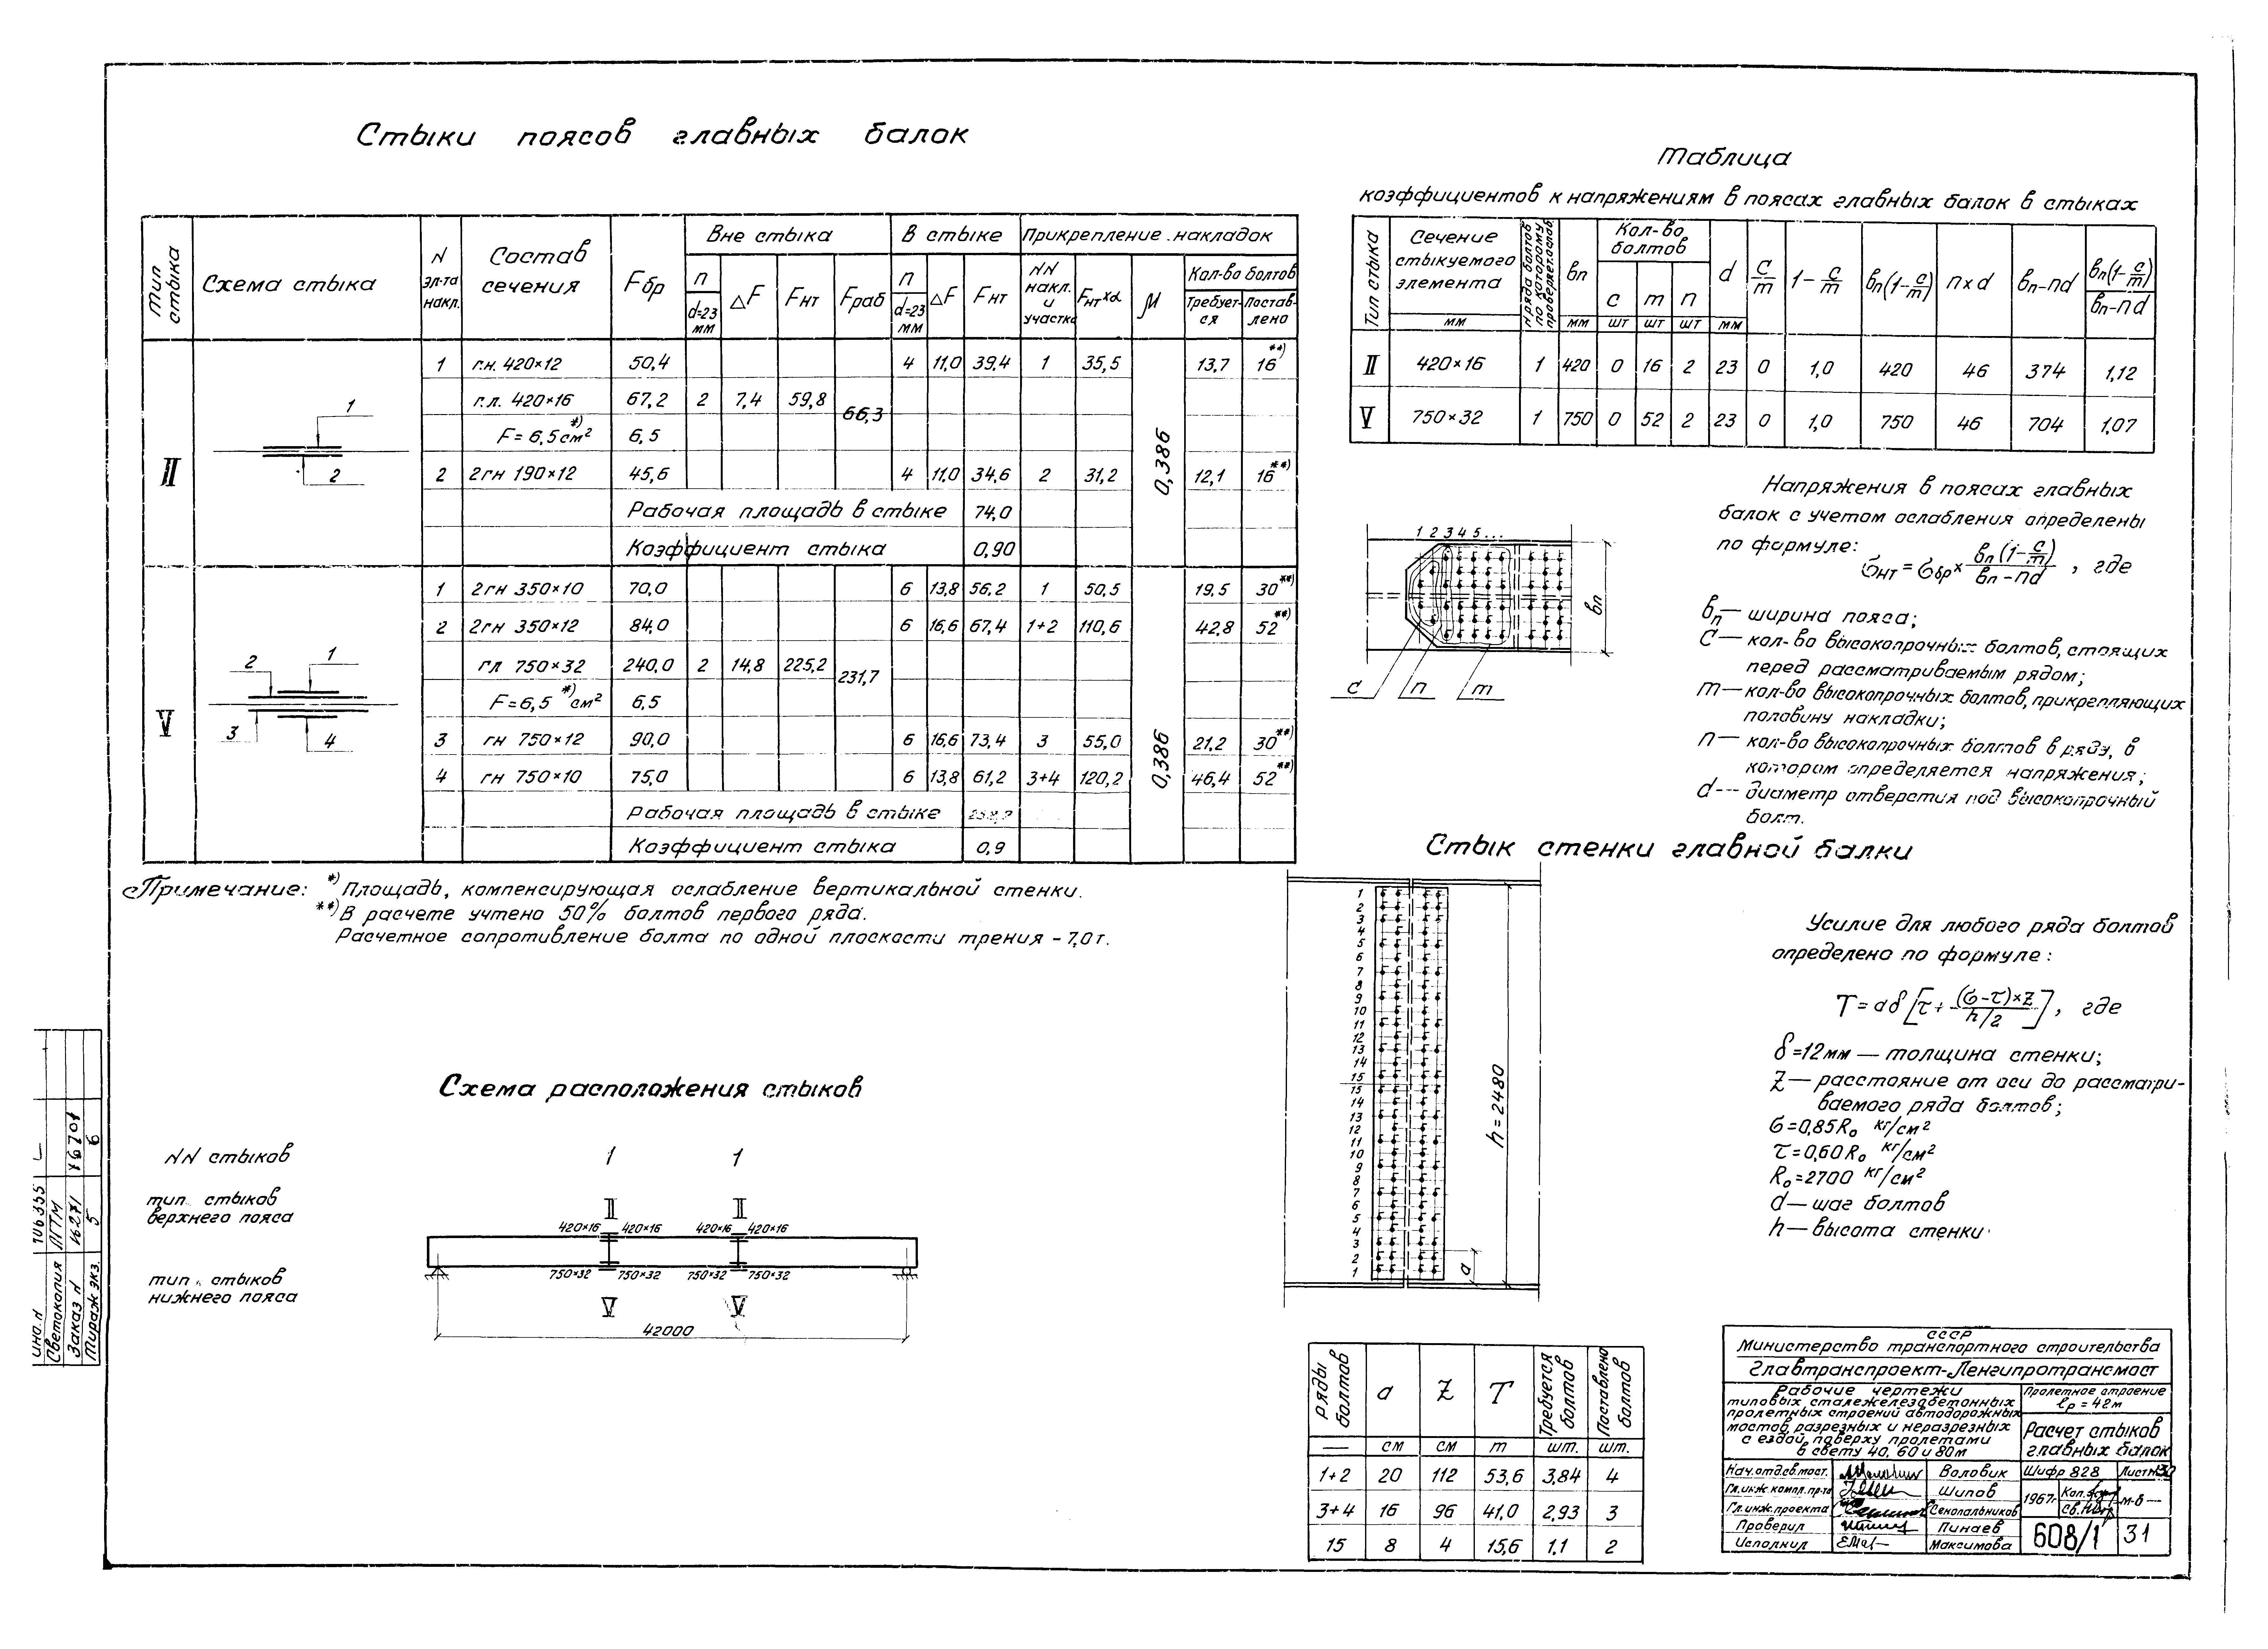 Стыки поясов главных балок
Тип стыка
Схема стыка
N эл-та накл.
Состав сечения
Fбр
Вне стыка
В стыке
Прикрепление накладок
n
d=23 мм
ΔF
Fнт
Fраб
n
d=23 мм
ΔF
Fнт
NN накл. и участка
Fнт×α
μ
Кол-во болтов
Требует-ся
Постав-лено
II
1
2
1 г.н. 420×12 50,4 4 11,0 39,4 1 35,5 13,7 16**)
г.л. 420×16 67,2 2 7,4 59,8 66,3
F=6,5см² *) 6,5
2 2гн 190×12 45,6 4 11,0 34,6 2 31,2 12,1 16**)
0,386
Рабочая площадь в стыке 74,0
Коэффициент стыка 0,90
V
2 1
3 4
1 2гн 350×10 70,0 6 13,8 56,2 1 50,5 19,5 30**)
2 2гн 350×12 84,0 6 16,6 67,4 1+2 110,6 42,8 52**)
гл 750×32 240,0 2 14,8 225,2 231,7
F=6,5 *) см² 6,5
3 гн 750×12 90,0 6 16,6 73,4 3 55,0 21,2 30**)
4 гн 750×10 75,0 6 13,8 61,2 3+4 120,2 46,4 52**)
0,386
Рабочая площадь в стыке
Коэффициент стыка 0,9
Примечание: *) Площадь, компенсирующая ослабление вертикальной стенки.
**) В расчете учтено 50% болтов первого ряда.
Расчетное сопротивление болта по одной плоскости трения – 7,0 т.
Таблица
коэффициентов к напряжениям в поясах главных балок в стыках
Тип стыка
Сечение стыкуемого элемента
мм
N ряда болтов по которому проверяет.ослаб.
bп
мм
Кол-во болтов
c m n
шт шт шт
d
мм
c/m
1-c/m
bп(1-c/m)
n×d
bп-nd
bп(1-c/m)/bп-nd
II 420×16 1 420 0 16 2 23 0 1,0 420 46 374 1,12
V 750×32 1 750 0 52 2 23 0 1,0 750 46 704 1,07
1 2 3 4 5 ...
bп
c n m
Напряжения в поясах главных
балок с учетом ослабления определены
по формуле:
σнт = σбр × bп(1-c/m)/bп-nd , где
bп — ширина пояса;
c — кол-во высокопрочных болтов, стоящих
перед рассматриваемым рядом;
m — кол-во высокопрочных болтов, прикрепляющих
половину накладки;
n — кол-во высокопрочных болтов в ряду, в
котором определяется напряжения;
d — диаметр отверстия под высокопрочный
болт.
Стык стенки главной балки
1
2
3
4
5
6
7
8
9
10
11
12
13
14
15
15
14
13
12
11
10
9
8
7
6
5
4
3
2
1
h=2480
a
Усилие для любого ряда болтов
определено по формуле:
T = aδ[τ + (σ-τ)×Z/h/2], где
δ=12мм — толщина стенки;
Z — расстояние от оси до рассматри-
ваемого ряда болтов;
σ=0,85R₀ кг/см²
τ=0,60R₀ кг/см²
R₀=2700 кг/см²
d — шаг болтов
h — высота стенки
Схема расположения стыков
NN стыков 1 1
тип стыков
верхнего пояса
II II
420×16 420×16 420×16 420×16
750×32 750×32 750×32 750×32
тип стыков
нижнего пояса
V V
42000
Ряды болтов
a
Z
T
Требуется болтов
Поставлено болтов
— см см т шт. шт.
1+2 20 112 53,6 3,84 4
3+4 16 96 41,0 2,93 3
15 8 4 15,6 1,1 2
СССР
Министерство транспортного строительства
Главтранспроект-Ленгипротрансмост
Рабочие чертежи
типовых сталежелезобетонных
пролетных строений автодорожных
мостов, разрезных и неразрезных
с ездой поверху пролетами
в свету 40, 60 и 80м
Пролетное строение
ℓр=42м
Расчет стыков
главных балок
Нач.отд.св.мост. Воловик
Гл.инж.компл.пр-та Шипов
Гл.инж.проекта
Проверил Пинаев
Исполнил Максимова
Шифр 828
1967г
Коп.
Св.
м-б —
608/1 31
инв. N 106355 —
Светокопия ЛГТМ
Заказ N 16271 16701
Тираж экз. 5 6